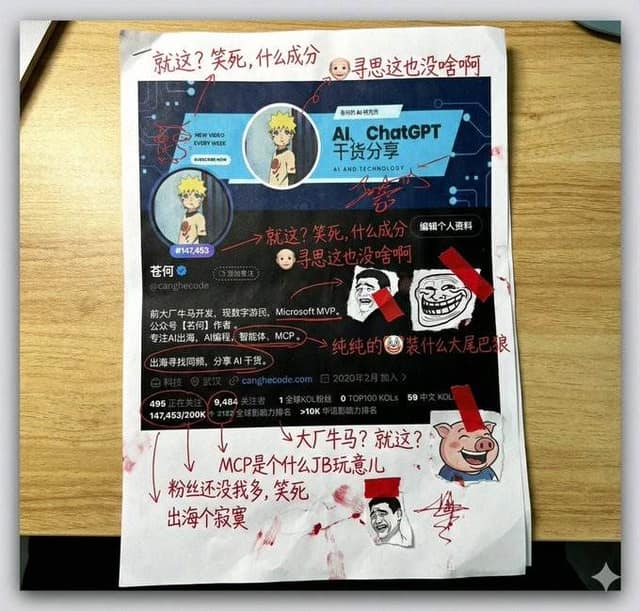 就这？笑死,什么成分
寻思这也没啥啊
NEW VIDEO
EVERY WEEK
SUBSCRIBE NOW
苍何的 AI 研究所
AI、ChatGPT
干货分享
AI AND TECHNOLOGY
#147,453
就这？笑死,什么成分
寻思这也没啥啊
编辑个人资料
苍何
添加专注
@canghecode
前大厂牛马开发、现数字游民，Microsoft MVP。
公众号【名何】作者 。
专注AI出海，AI编程，智能体，MCP 。
纯纯的🤡装什么大尾巴狼
出海寻找同频，分享 AI 干货。
科技 武汉 canghecode.com 2020年2月 加入
495 正在关注 9,484 关注者 1 全球KOL粉丝 0 TOP100 KOLs 59 中文 KOL
147,453/200K ↑ 2182 全球影响力排名 >10K 华语影响力排名
大厂牛马？就这？
MCP是个什么JB玩意儿
粉丝还没我多,笑死
出海个寂寞